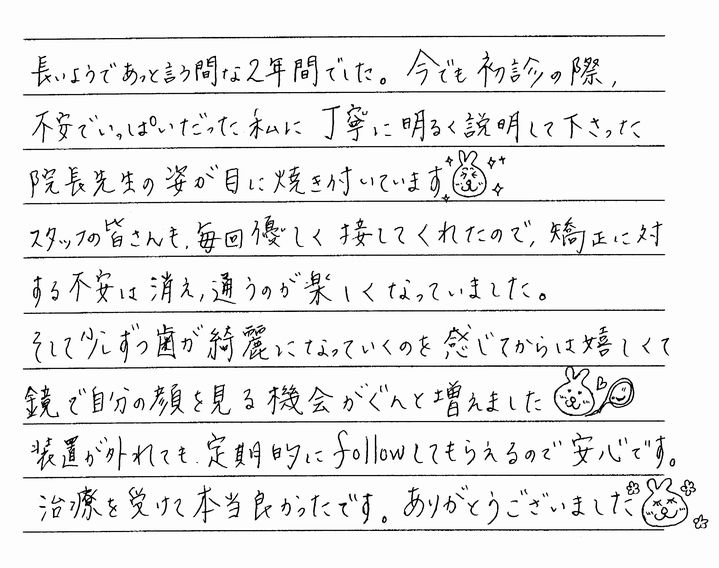 長いようであっと言う間な2年間でした。今でも初診の際,
不安でいっぱいだった私に丁寧に明るく説明して下さった
院長先生の姿が目に焼き付いています
スタッフの皆さんも,毎回優しく接してくれたので,矯正に対
する不安は消え,通うのが楽しくなっていました。
そして少しずつ歯が綺麗になっていくのを感じてからは嬉しくて
鏡で自分の顔を見る機会がぐんと増えました
装置が外れても,定期的にfollowしてもらえるので安心です。
治療を受けて本当良かったです。ありがとうございました